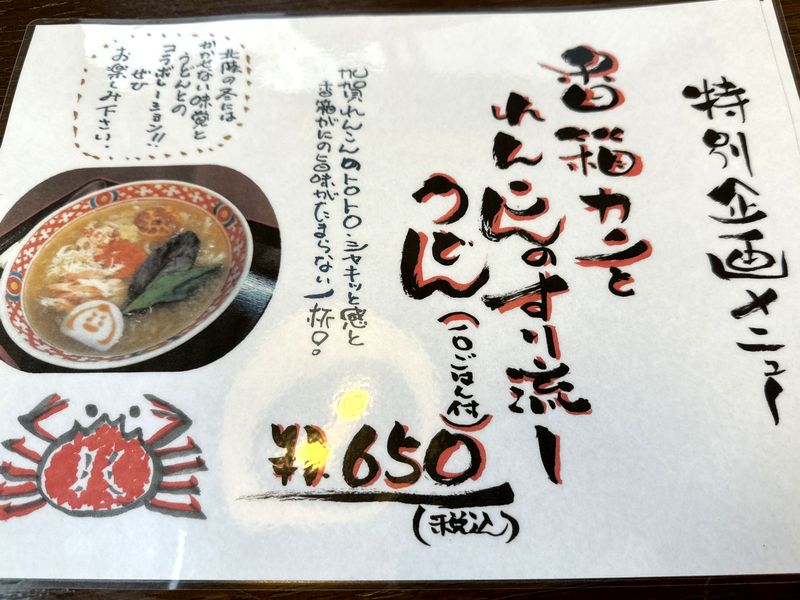 特別企画メニュー
香箱カニと
れんこんのすり流し
うどん(一口ごはん付)
¥1.650
(税込)
加賀れんこんのトロトロ・シャキッと感と
香箱がにの旨味がたまらない一杯。
北陸の冬には
かかせない味覚と
うどんとの
コラボレーション!!
ぜひ
お楽しみ下さい。
K